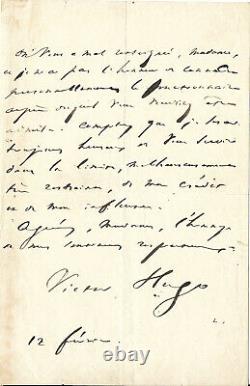 On Vous a mal renseigné, Madame,
je n'ai pas l'honneur de connaître
personnellement le fonctionnaire
auprès duquel Vous
comptez que je serai
toujours heureux de Vous servir
dans la limite, malheureusement
très restreinte, de mon crédit
et de mon influence.
Agréez, Madame, l'hommage
de mes respectueux
Victor Hugo
12 février
© 123rd